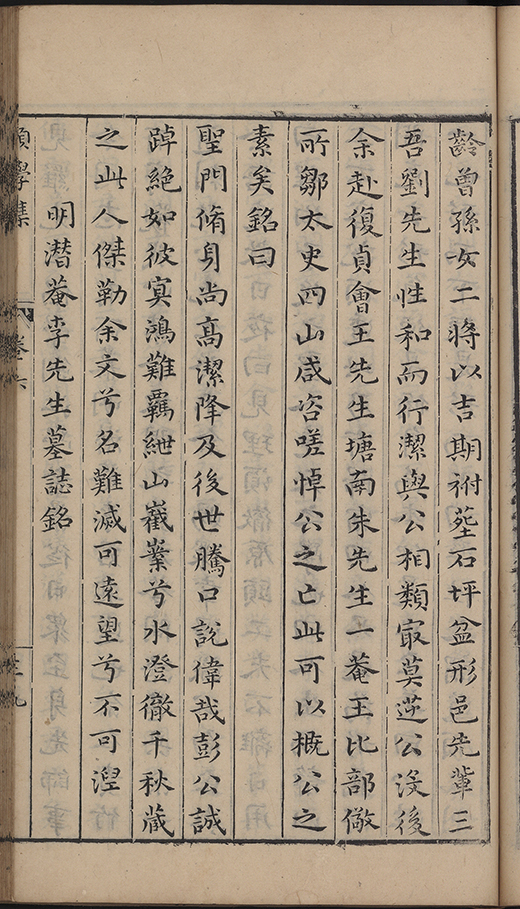 齡曾孫女二將以吉期祔塟石坪盆形邑先輩三
吾劉先生性和而行潔與公相類㝡莫逆公沒後
余赴復貞會王先生塘南朱先生一菴王比部儆
所鄒太史四山咸咨嗟悼公之亡此可以概公之
素矣銘曰
聖門脩身尚高潔降及後世騰口說偉哉彭公誠
踔絕如彼㝠鴻難羈紲山嶻嶪兮水澄徹千秋蔵
之此人傑勒余文兮名難滅可遠望兮不可湼
明潛菴李先生墓誌銘
學集
卷六